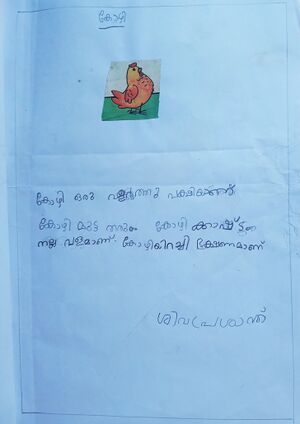 കോഴി
കോഴി ഒരു വളർത്തു പക്ഷിയാണ്
കോഴി മുട്ട തരും കോഴി ക്കാഷ്ട്ടം
നല്ല വളമാണ്. കോഴിയിറച്ചി ഭക്ഷണമാണ്
ശിവപ്രശാന്ത്